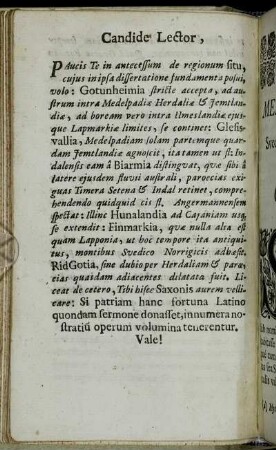 Candide Lector,
PAucis Te in antecessum de regionum situ,
cujus in ipsa dissertatione fundamenta posui,
volo: Gotunheimia stricte accepta, ad au-
strum intra Medelpadiæ Herdaliæ & Jemtlan-
diæ, ad boream vero intra Umeslandiæ ejus-
que Lapmarkiæ limites, se continet: Glesis-
vallia, Medelpadiam solam partemque quar-
dam Jemtlandiæ agnoscit, ita tamen ut fl: In-
dalensis eam à Biarmia distingvat, quæ sibi à
latere ejusdem fluvii australi, paroecias exi-
guas Timera Setena & Indal retinet, compre-
hendendo quidquid cis fl. Angermannensem
spectat: Illinc Hunalandia ad Cajaniam usq,
se extendit: Finmarkia, quæ nulla alia est
quam Lapponia, ut hoc tempore ita antiqui-
tus, montibus Svedico Norrigicis adhæsit.
RidGotia, sine dubio per Herdaliam & paræ-
cias quasdam adiacentes delatata fuit. Li-
ceat de cetero, Tibi hisce Saxonis aurem velli-
care: Si patriam hanc fortuna Latino
quondam sermone donasset, innumera no-
stratiũ operum volumina tenerentur.
Vale!